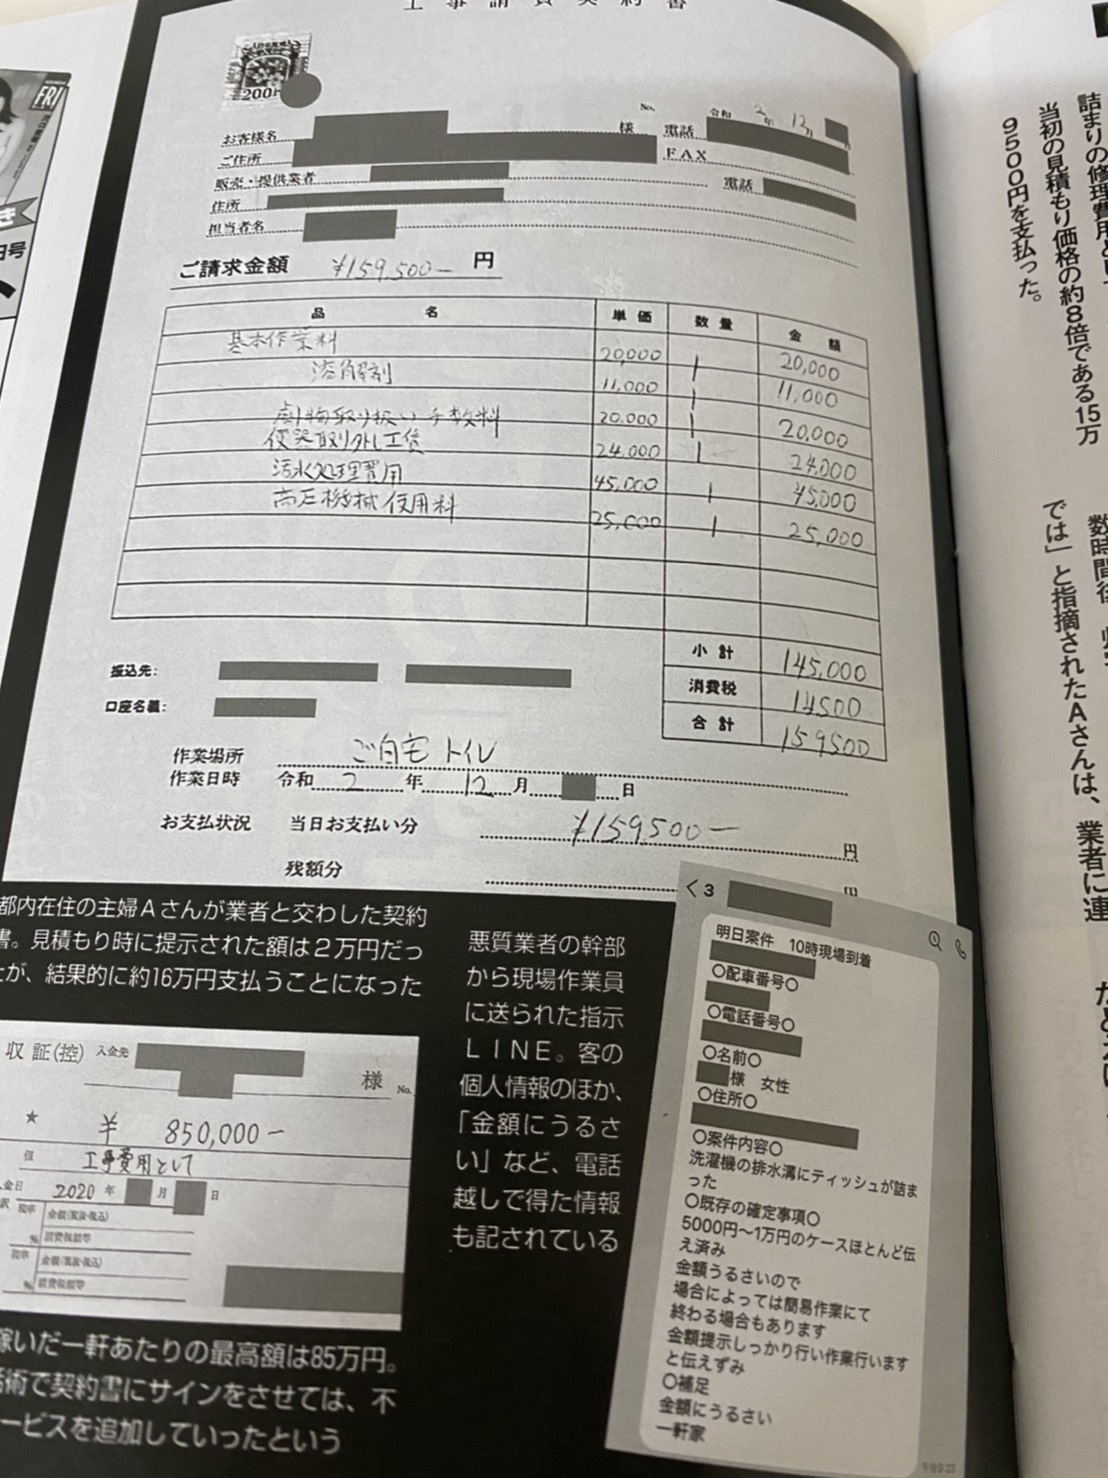 工事請負契約書
200
No.
令和 2年 12月
お客様名 様 電話
ご住所 FAX
販売・提供業者 電話
住所
担当者名
ご請求金額 ¥159,500- 円
品名 単価 数量 金額
基本作業料 20,000 1 20,000
溶解剤 11,000 1 11,000
劇物取り扱い手数料 20,000 1 20,000
便器取り外し工賃 24,000 1 24,000
汚水処理費用 45,000 1 45,000
高圧機械使用料 25,000 1 25,000
小計 145,000
消費税 14500
合計 159500
振込先:
口座名義:
作業場所 ご自宅 トイレ
作業日時 令和 2 年 12 月 日
お支払状況 当日お支払い分 ¥159500- 円
残額分 円
都内在住の主婦Aさんが業者と交わした契約
書。見積もり時に提示された額は2万円だっ
たが、結果的に約16万円支払うことになった
悪質業者の幹部
から現場作業員
に送られた指示
LINE。客の
個人情報のほか、
「金額にうるさ
い」など、電話
越しで得た情報
も記されている
収証(控) 入金先 様 No.
★ ¥ 850,000-
但 工事費用として
入金日 2020年 月 日
訳 税率 金額(税抜・税込)
% 消費税額等
税率 金額(税抜・税込)
% 消費税額等
稼いだ一軒あたりの最高額は85万円。
話術で契約書にサインをさせては、不
ービスを追加していったという
< 3
明日案件 10時現場到着
○配車番号○
○電話番号○
○名前○
様 女性
○住所○
○案件内容○
洗濯機の排水溝にティッシュが詰ま
った
○既存の確定事項○
5000円〜1万円のケースほとんど伝
え済み
金額うるさいので
場合によっては簡易作業にて
終わる場合もあります
金額提示しっかり行い作業行います
と伝えずみ
○補足
金額にうるさい
一軒家
午後9:23
詰まりの修理費用として
当初の見積もり価格の約8倍である15万
9500円を支払った。
数時間後
では」と指摘されたAさんは、業者に連
FRI
日号